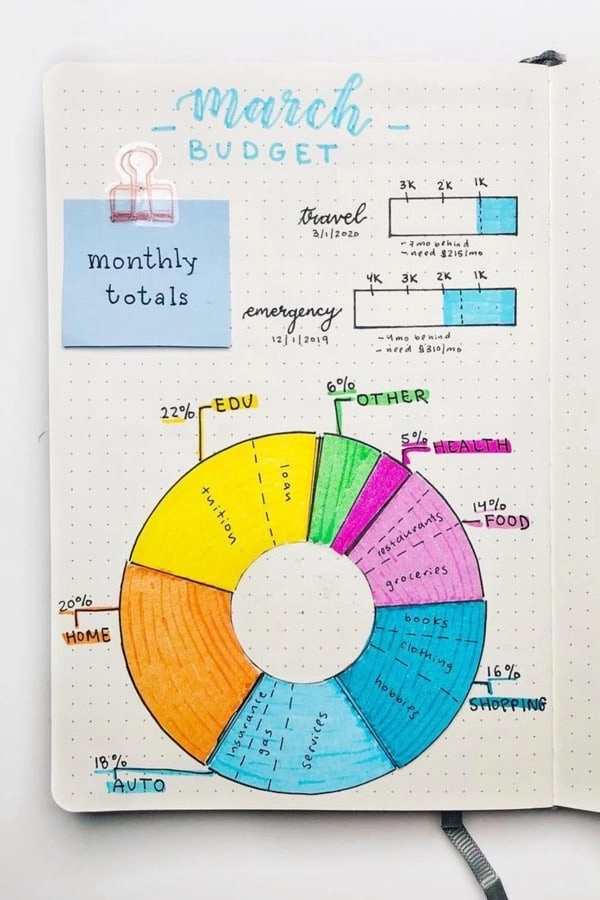 march
BUDGET
monthly
totals
travel
3/1/2020
3K 2K 1K
- 7 mo behind
- need $215/mo
emergency
12/1/2019
4K 3K 2K 1K
- 4 mo behind
- need $310/mo
22% EDU
6% OTHER
5% HEALTH
14% FOOD
16% SHOPPING
18% AUTO
20% HOME
tuition
loan
restaurants
groceries
books
clothing
hobbies
services
gas
insurance